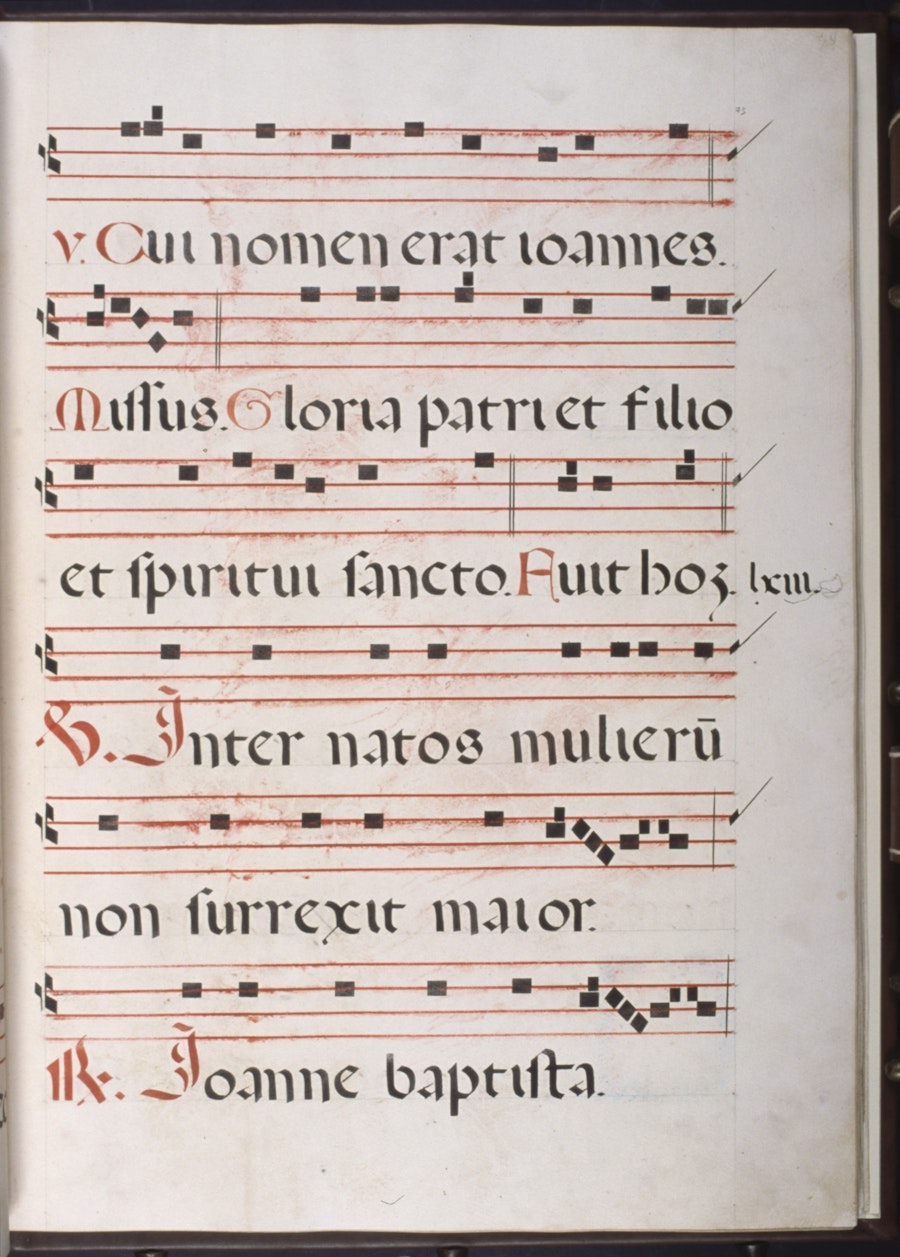 v. Cui nomen erat ioannes.
Missus. Gloria patri et filio
et spiritui sancto. Fuit hoz. lxiii.
V. Inter natos mulierū
non surrexit maior.
℟. Joanne baptista.